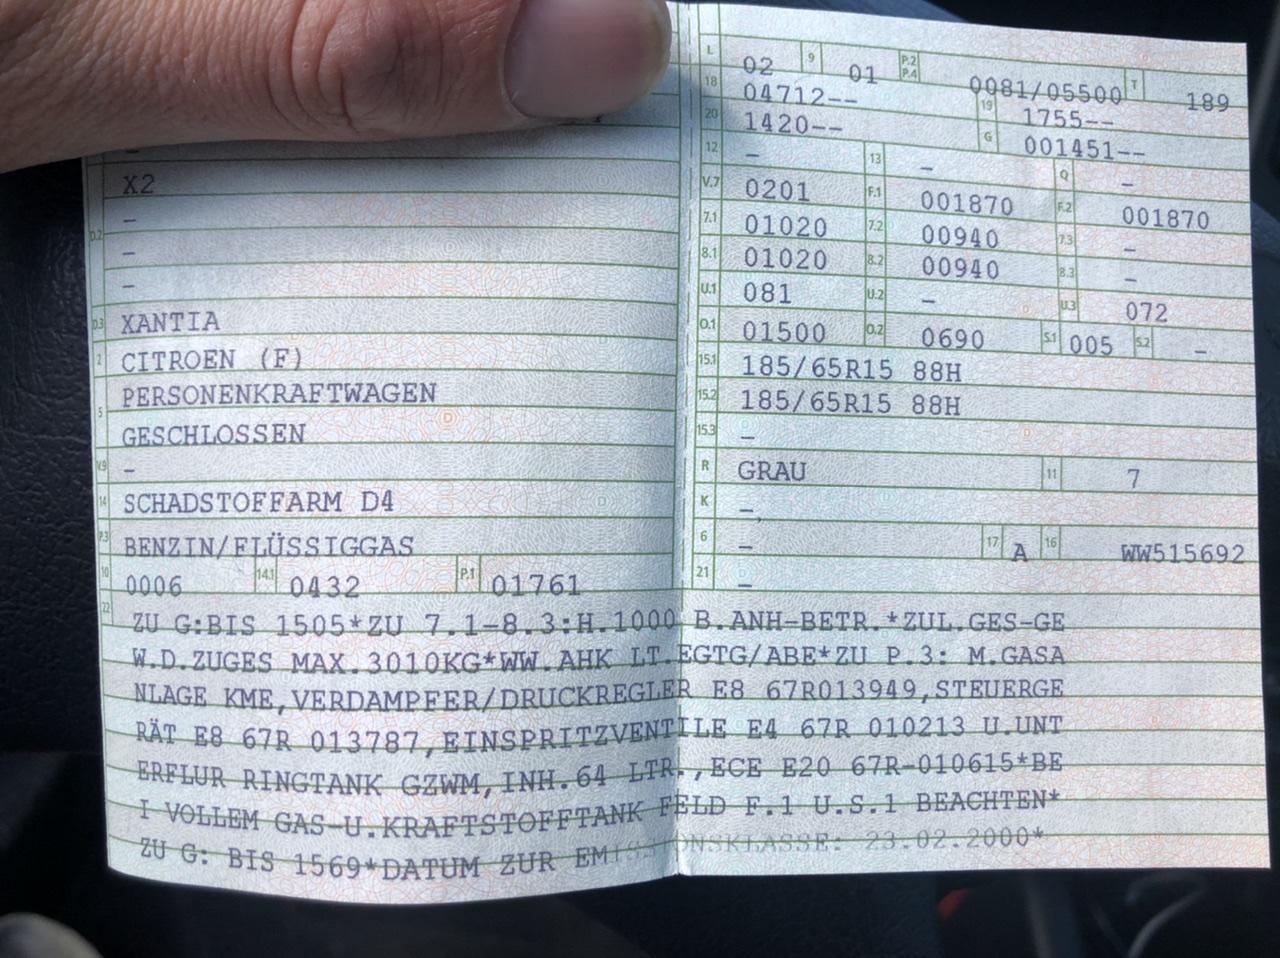 X2
D.2
D.3 XANTIA
2 CITROEN (F)
5 PERSONENKRAFTWAGEN
GESCHLOSSEN
V.9 –
14 SCHADSTOFFARM D4
P.3 BENZIN/FLÜSSIGGAS
10 0006 14.1 0432 P.1 01761
L 02 9 01 P.2 P.4 0081/05500 T 189
18 04712-- 19 1755--
20 1420-- G 001451--
12 – 13 – Q –
V.7 0201 F.1 001870 F.2 001870
7.1 01020 7.2 00940 7.3 –
8.1 01020 8.2 00940 8.3 –
U.1 081 U.2 – U.3 072
O.1 01500 O.2 0690 S.1 005 S.2 –
15.1 185/65R15 88H
15.2 185/65R15 88H
15.3 –
R GRAU 11 7
K –
6 – 17 A 16 WW515692
21 –
22 ZU G:BIS 1505*ZU 7.1-8.3:H.1000 B.ANH-BETR.*ZUL.GES-GE
W.D.ZUGES MAX.3010KG*WW.AHK LT.EGTG/ABE*ZU P.3: M.GASA
NLAGE KME,VERDAMPFER/DRUCKREGLER E8 67R013949,STEUERGE
RÄT E8 67R 013787,EINSPRITZVENTILE E4 67R 010213 U.UNT
ERFLUR RINGTANK GZWM,INH.64 LTR.,ECE E20 67R-010615*BE
I VOLLEM GAS-U.KRAFTSTOFFTANK FELD F.1 U.S.1 BEACHTEN*
ZU G: BIS 1569*DATUM ZUR EMISSIONSKLASSE: 23.02.2000*